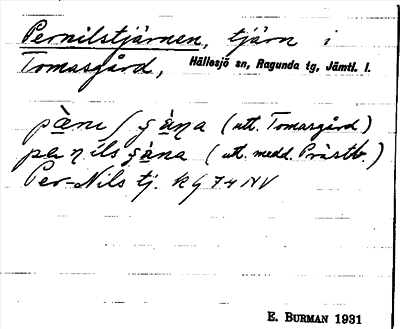 Pernilstjärnen, tjärn i
Tomasgård, Hällesjö sn, Ragunda tg, Jämtl. l.
(utt. Tomasgård)
(utt. medd. Prästb.)
Per-Nils tj. k G 74 NV
E. BURMAN 1931